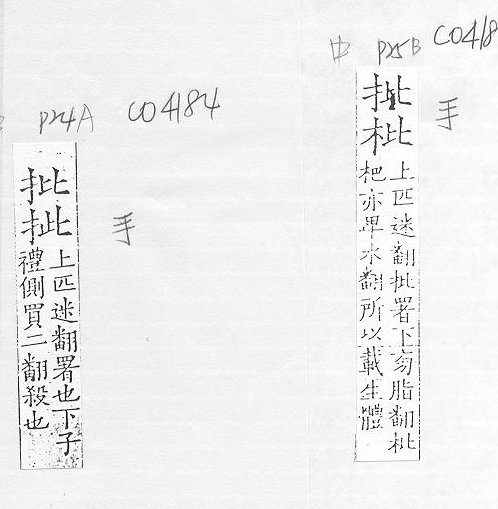 P24A C04184
批
㧗
手
上匹迷翻署也下子
禮側買二翻殺也
中 P25B C0418
批
枇
手
上匹迷翻批署下脂翻枇
杷亦卑水翻所以載生體